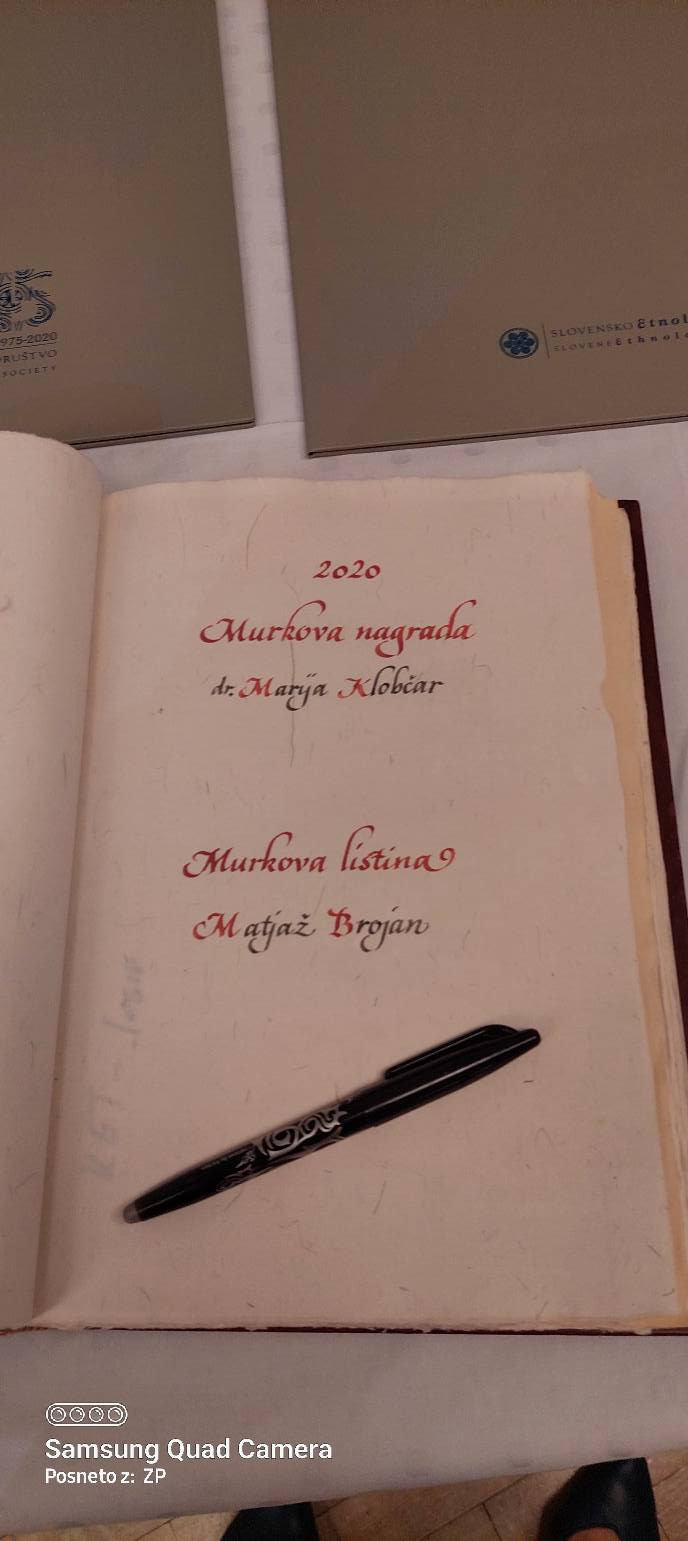 1975-2020
DRUŠTVO
SOCIETY
SLOVENSKO Etnol
SLOVENE Ethnolo
2020
Murkova nagrada
dr. Marija Klobčar
Murkova listina
Matjaž Brojan
Samsung Quad Camera
Posneto z: ZP